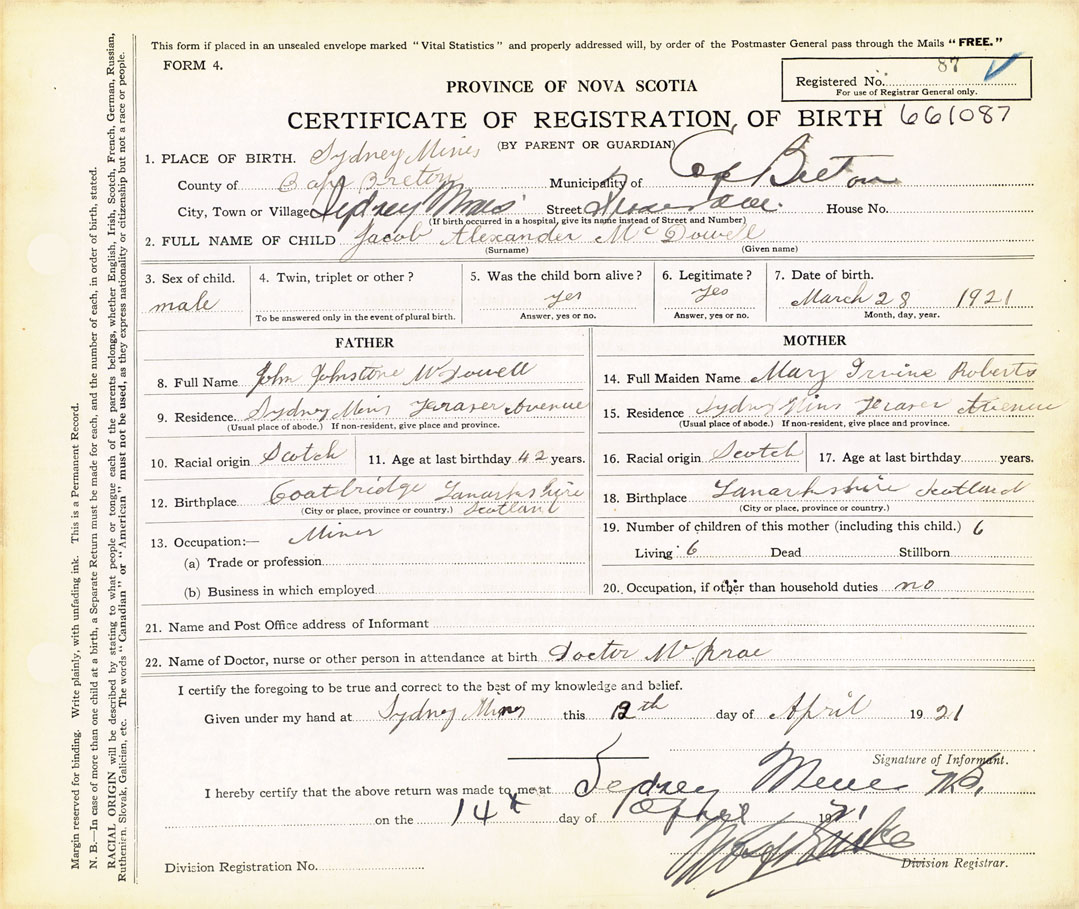 This form if placed in an unsealed envelope marked "Vital Statistics" and properly addressed will, by order of the Postmaster General pass through the Mails "FREE."
FORM 4.
Registered No. 87
For use of Registrar General only.
PROVINCE OF NOVA SCOTIA
CERTIFICATE OF REGISTRATION OF BIRTH 661087
(BY PARENT OR GUARDIAN)
1. PLACE OF BIRTH. Sydney Mines
County of Cape Breton Municipality of Cape Breton
City, Town or Village Sydney Mines Street House No.
(If birth occurred in a hospital, give its name instead of Street and Number)
2. FULL NAME OF CHILD Jacob Alexander McDowell
(Surname) (Given name)
3. Sex of child. male
4. Twin, triplet or other?
To be answered only in the event of plural birth.
5. Was the child born alive? yes
Answer, yes or no.
6. Legitimate? yes
Answer, yes or no.
7. Date of birth.
March 28 1921
Month, day, year.
FATHER
8. Full Name John Johnstone McDowell
9. Residence. Sydney Mines Fraser Avenue
(Usual place of abode.) If non-resident, give place and province.
10. Racial origin Scotch 11. Age at last birthday 42 years.
12. Birthplace Coatbridge Lanarkshire
(City or place, province or country.) Scotland
13. Occupation:— Miner
(a) Trade or profession
(b) Business in which employed
MOTHER
14. Full Maiden Name Mary Irvine Roberts
15. Residence Sydney Mines Fraser Avenue
(Usual place of abode.) If non-resident, give place and province.
16. Racial origin Scotch 17. Age at last birthday years.
18. Birthplace Lanarkshire Scotland
(City or place, province or country.)
19. Number of children of this mother (including this child.) 6
Living 6 Dead Stillborn
20. Occupation, if other than household duties no
21. Name and Post Office address of Informant
22. Name of Doctor, nurse or other person in attendance at birth Doctor McRae
I certify the foregoing to be true and correct to the best of my knowledge and belief.
Given under my hand at Sydney Mines this 12th day of April 1921
Signature of Informant.
I hereby certify that the above return was made to me at Sydney Mines N.S.
on the 14th day of April 1921
Division Registration No. Division Registrar.
Margin reserved for binding. Write plainly, with unfading ink. This is a Permanent Record.
N. B.—In case of more than one child at a birth, a Separate Return must be made for each, and the number of each, in order of birth, stated.
RACIAL ORIGIN will be described by stating to what people or tongue each of the parents belongs, whether English, Irish, Scotch, French, German, Russian,
Ruthenian, Slovak, Galician, etc. The words "Canadian" or "American" must not be used, as they express nationality or citizenship but not a race or people.